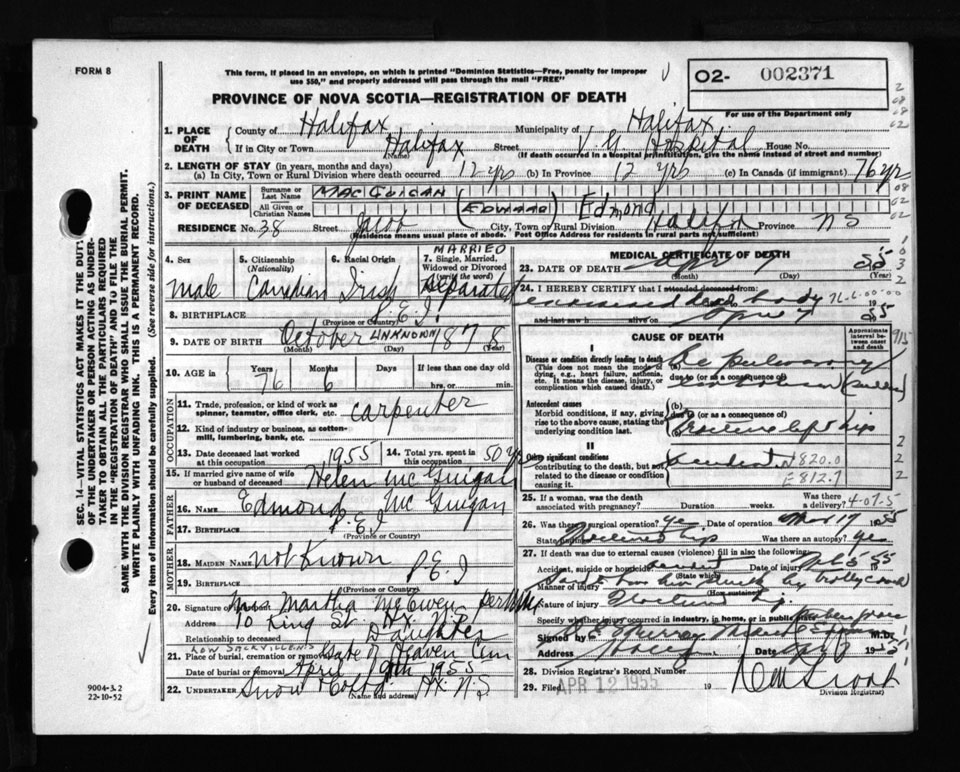 FORM 8
This form, if placed in an envelope, on which is printed "Dominion Statistics—Free, penalty for improper
use $50," and properly addressed will pass through the mail "FREE"
02- 002371
For use of the Department only
PROVINCE OF NOVA SCOTIA—REGISTRATION OF DEATH
1. PLACE OF DEATH { County of Halifax Municipality of Halifax
If in City or Town Halifax (Name) Street V.G. Hospital House No.
(If death occurred in a hospital or institution, give the name instead of street and number)
2. LENGTH OF STAY (in years, months and days)
(a) In City, Town or Rural Division where death occurred 12 yrs (b) In Province 12 yrs (c) In Canada (if immigrant) 76 yrs
3. PRINT NAME OF DECEASED { Surname or Last Name MACGUIGAN
All Given or Christian Names (EDWARD) Edmond
RESIDENCE No. 38 Street Jacob City, Town or Rural Division Halifax Province N S
(Residence means usual place of abode. Post Office Address for residents in rural parts not sufficient)
4. Sex Male
5. Citizenship (Nationality) Canadian
6. Racial Origin Irish
7. Single, Married, Widowed or Divorced (write the word) MARRIED Separated
8. BIRTHPLACE P.E.I. (Province or Country)
9. DATE OF BIRTH October (Month) UNKNOWN (Day) 1878 (Year)
10. AGE Years 76 Months 6 Days If less than one day hrs. or min.
OCCUPATION
11. Trade, profession, or kind of work as spinner, teamster, office clerk, etc. carpenter
12. Kind of industry or business, as cotton-mill, lumbering, bank, etc.
13. Date deceased last worked at this occupation 1955
14. Total yrs. spent in this occupation 50 yrs
15. If married give name of wife or husband of deceased Helen McGuigan
FATHER
16. Name Edmond McGuigan
17. Birthplace P.E.I (Province or Country)
MOTHER
18. Maiden Name not Known
19. Birthplace P.E.I (Province or Country)
20. Signature of Mrs Martha McEwen per
Address 10 King St. Hx. N.S.
Relationship to deceased Daughter
LOW SACKVILLE NS
21. Place of burial, cremation or removal Gate of Heaven Cem
Date of burial or removal April 9th 1955
22. UNDERTAKER Snow & Co Ltd Hx. N.S (Name and address)
9004-3.2
22-10-52
MEDICAL CERTIFICATE OF DEATH
23. DATE OF DEATH Apr (Month) 7 (Day) 55 (Year)
24. I HEREBY CERTIFY that I attended deceased from:
dead body
and last saw h alive on April 7 1955
CAUSE OF DEATH
Approximate interval between onset and death
I
Disease or condition directly leading to death
(This does not mean the mode of dying, e.g., heart failure, asthenia, etc. It means the disease, injury, or complication which caused death.)
(a) pulmonary
due to (or as a consequence of)
Antecedent causes
Morbid conditions, if any, giving rise to the above cause, stating the underlying condition last.
(b)
due to (or as a consequence of)
fracture left hip
II
Other significant conditions contributing to the death, but not related to the disease or condition causing it.
accident N820.0
E812.7
25. If a woman, was the death associated with pregnancy? Duration weeks. Was there a delivery? 4-07-5
26. Was there a surgical operation? yes Date of operation Mar 17 1955
State findings Fractured hip Was there an autopsy? yes
27. If death was due to external causes (violence) fill in also the following:
Accident, suicide or homicide? accident (State which) Date of injury Feb 5 55
Manner of injury struck by trolley coach (How sustained)
Nature of injury Fractured hip.
Specify whether injury occurred in industry, in home, or in public place
Signed by Murray M.D.
Address Hfx 1955
28. Division Registrar's Record Number
29. Filed APR 12 1955 19
Division Registrar
SEC. 14—VITAL STATISTICS ACT MAKES IT THE DUTY
OF THE UNDERTAKER OR PERSON ACTING AS UNDER-
TAKER TO OBTAIN ALL THE PARTICULARS REQUIRED
IN THE "REGISTRATION OF DEATH" AND TO FILE THE
SAME WITH THE DIVISION REGISTRAR WHO SHALL ISSUE THE BURIAL PERMIT.
WRITE PLAINLY WITH UNFADING INK. THIS IS A PERMANENT RECORD.
Every item of information should be carefully supplied. (See reverse side for instructions.)